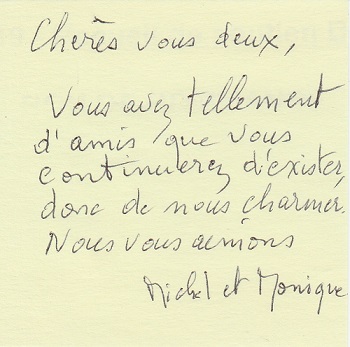 Chères vous deux,
Vous avez tellement
d'amis que vous
continuerez d'exister,
donc de nous charmer.
Nous vous aimons
Michel et Monique